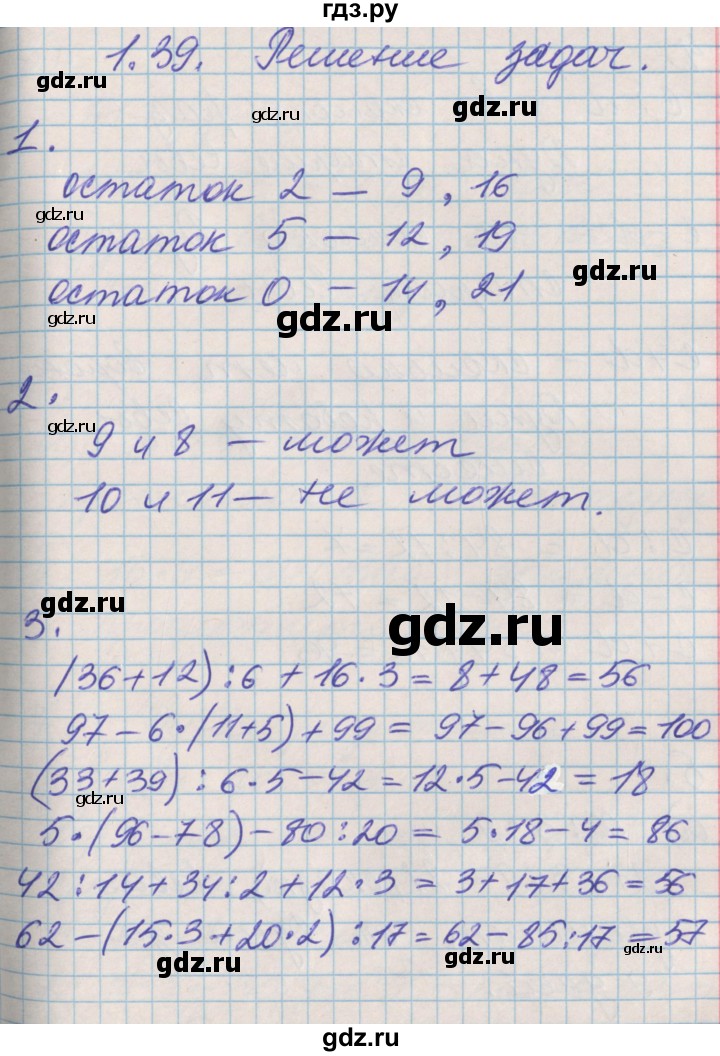 гдз.ру
1.39. Решение задач.
gdz.ru
gdz.ru
1.
остаток 2 – 9, 16
gdz.ru
остаток 5 – 12, 19
gdz.ru
остаток 0 – 14, 21
gdz.ru
gdz.ru
2.
gdz.ru
9 и 8 – может
10 и 11 – не может.
gdz.ru
gdz.ru
3.
(36+12):6+16·3=8+48=56
97-6·(11+5)+99=97-96+99=100
(33+39):6·5-42=12·5-42=18
gdz.ru
5·(96-78)-80:20=5·18-4=86
42:14+34:2+12·3=3+17+36=56
62-(15·3+20·2):17=62-85:17=57
gdz.ru
gdz.ru
gdz.ru
gdz.ru